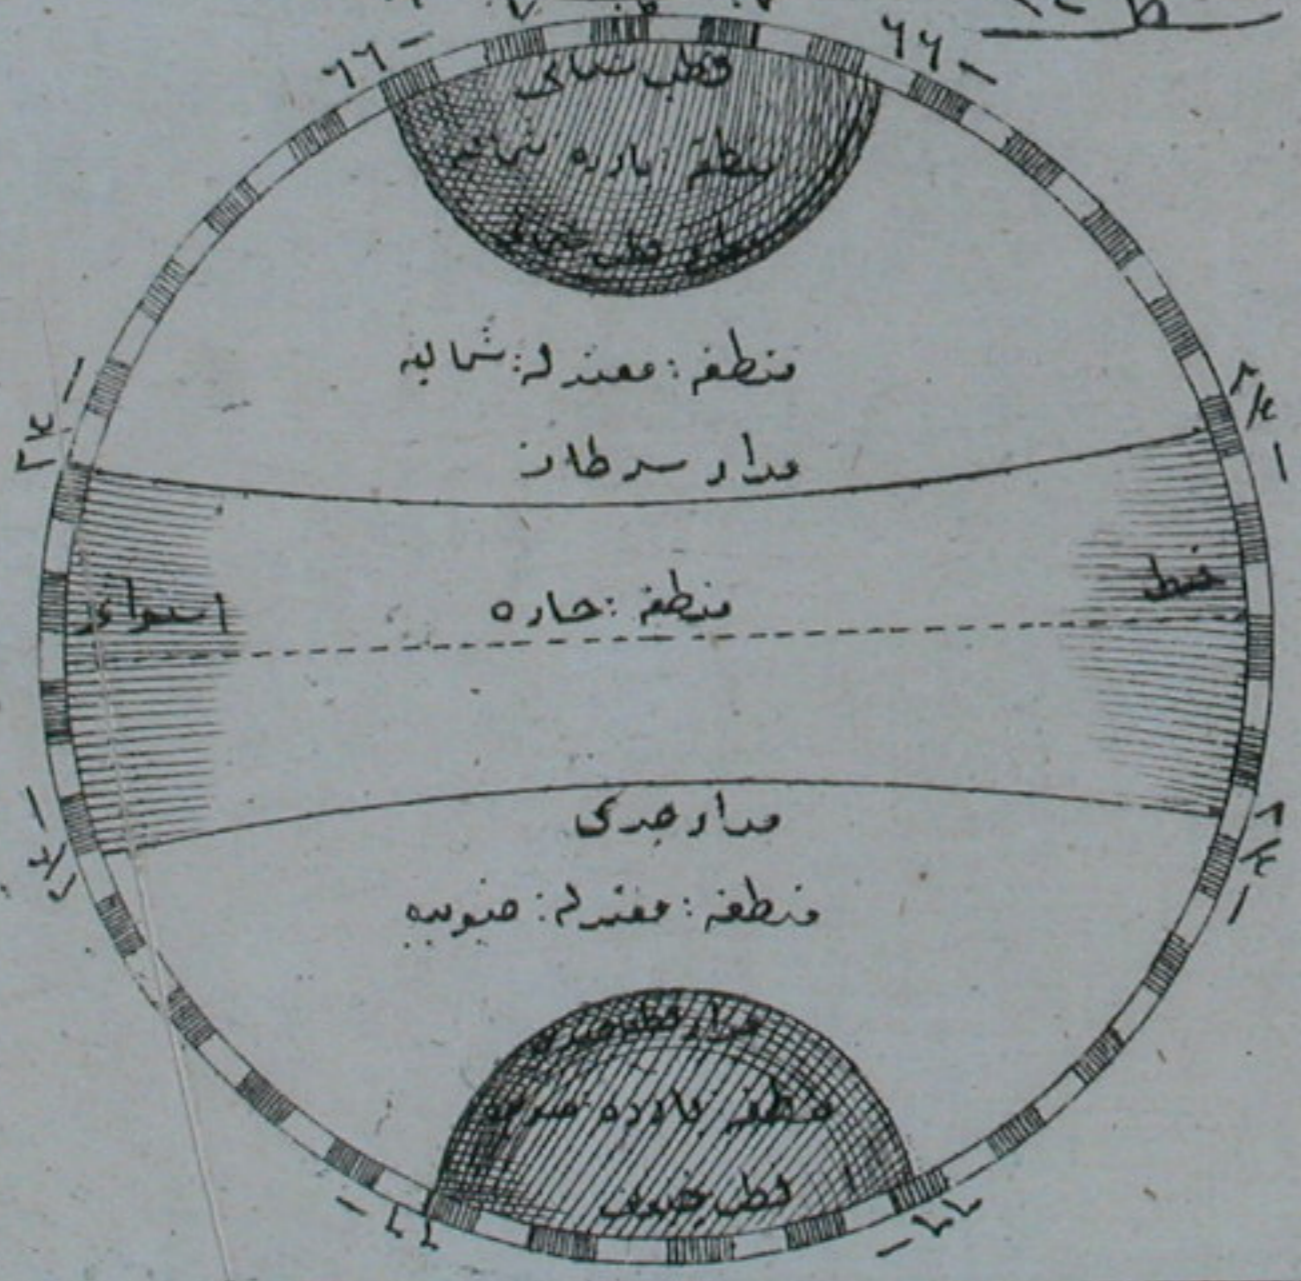 ٦٦
٦٦
قطب شمالی
منطقهٔ بارده شمالیه
مدار قطب شمالی
منطقه: معتدله: شمالیه
٢٣
٢٣
مدار سرطان
منطقه: حاره
خط استوائی
مدار جدی
٢٣
٢٣
منطقه: معتدله: جنوبیه
مدار قطب جنوبی
منطقهٔ بارده جنوبیه
قطب جنوبی
٦٦
٦٦